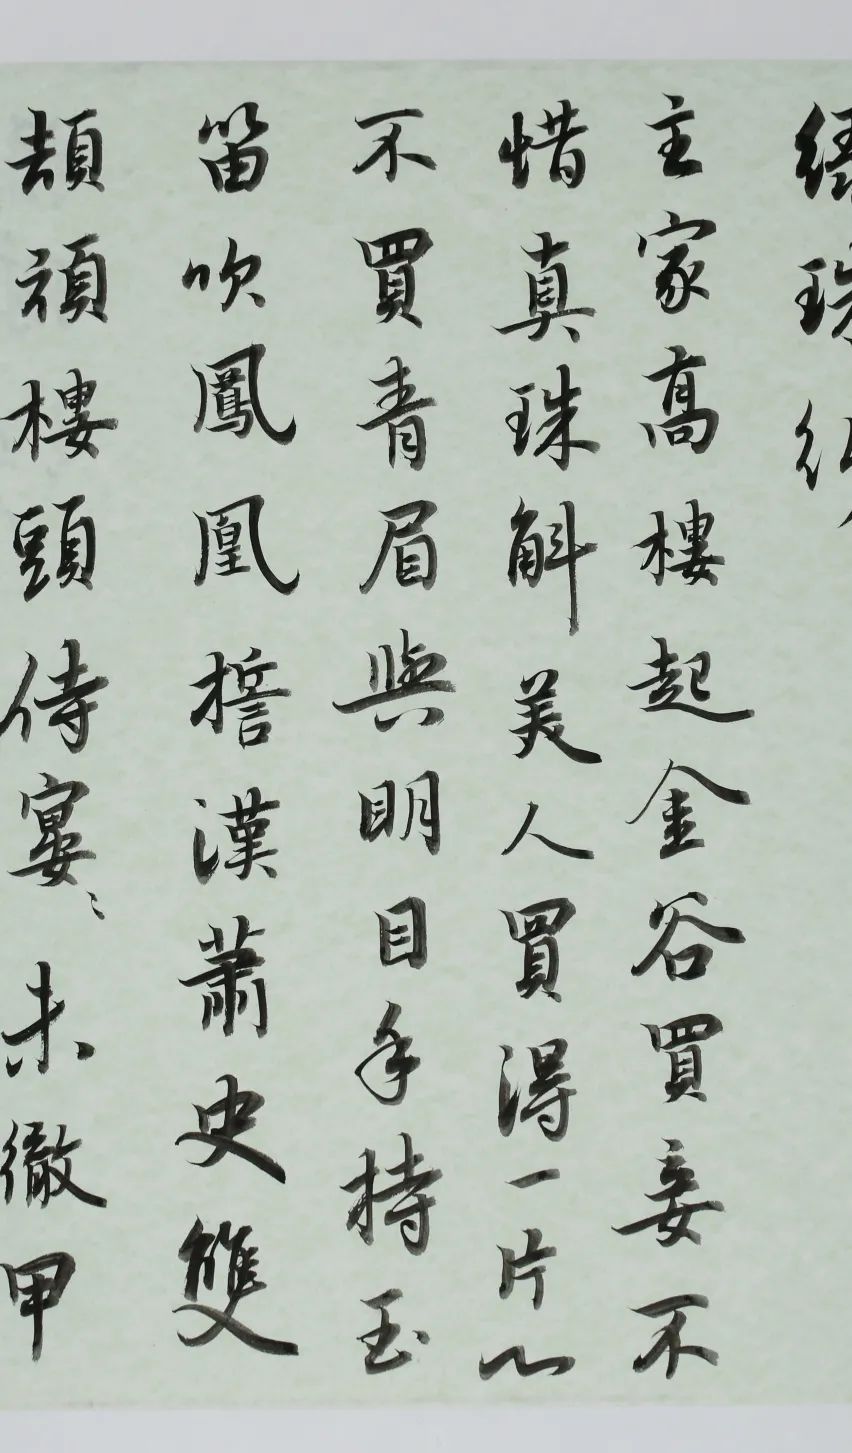 綠珠
主家高樓起金谷買妾不
惜真珠斛美人買得一片心
不買青眉與明目手持玉
笛吹鳳凰誓漢蕭史雙
頡頏樓頭侍宴〻未徹甲